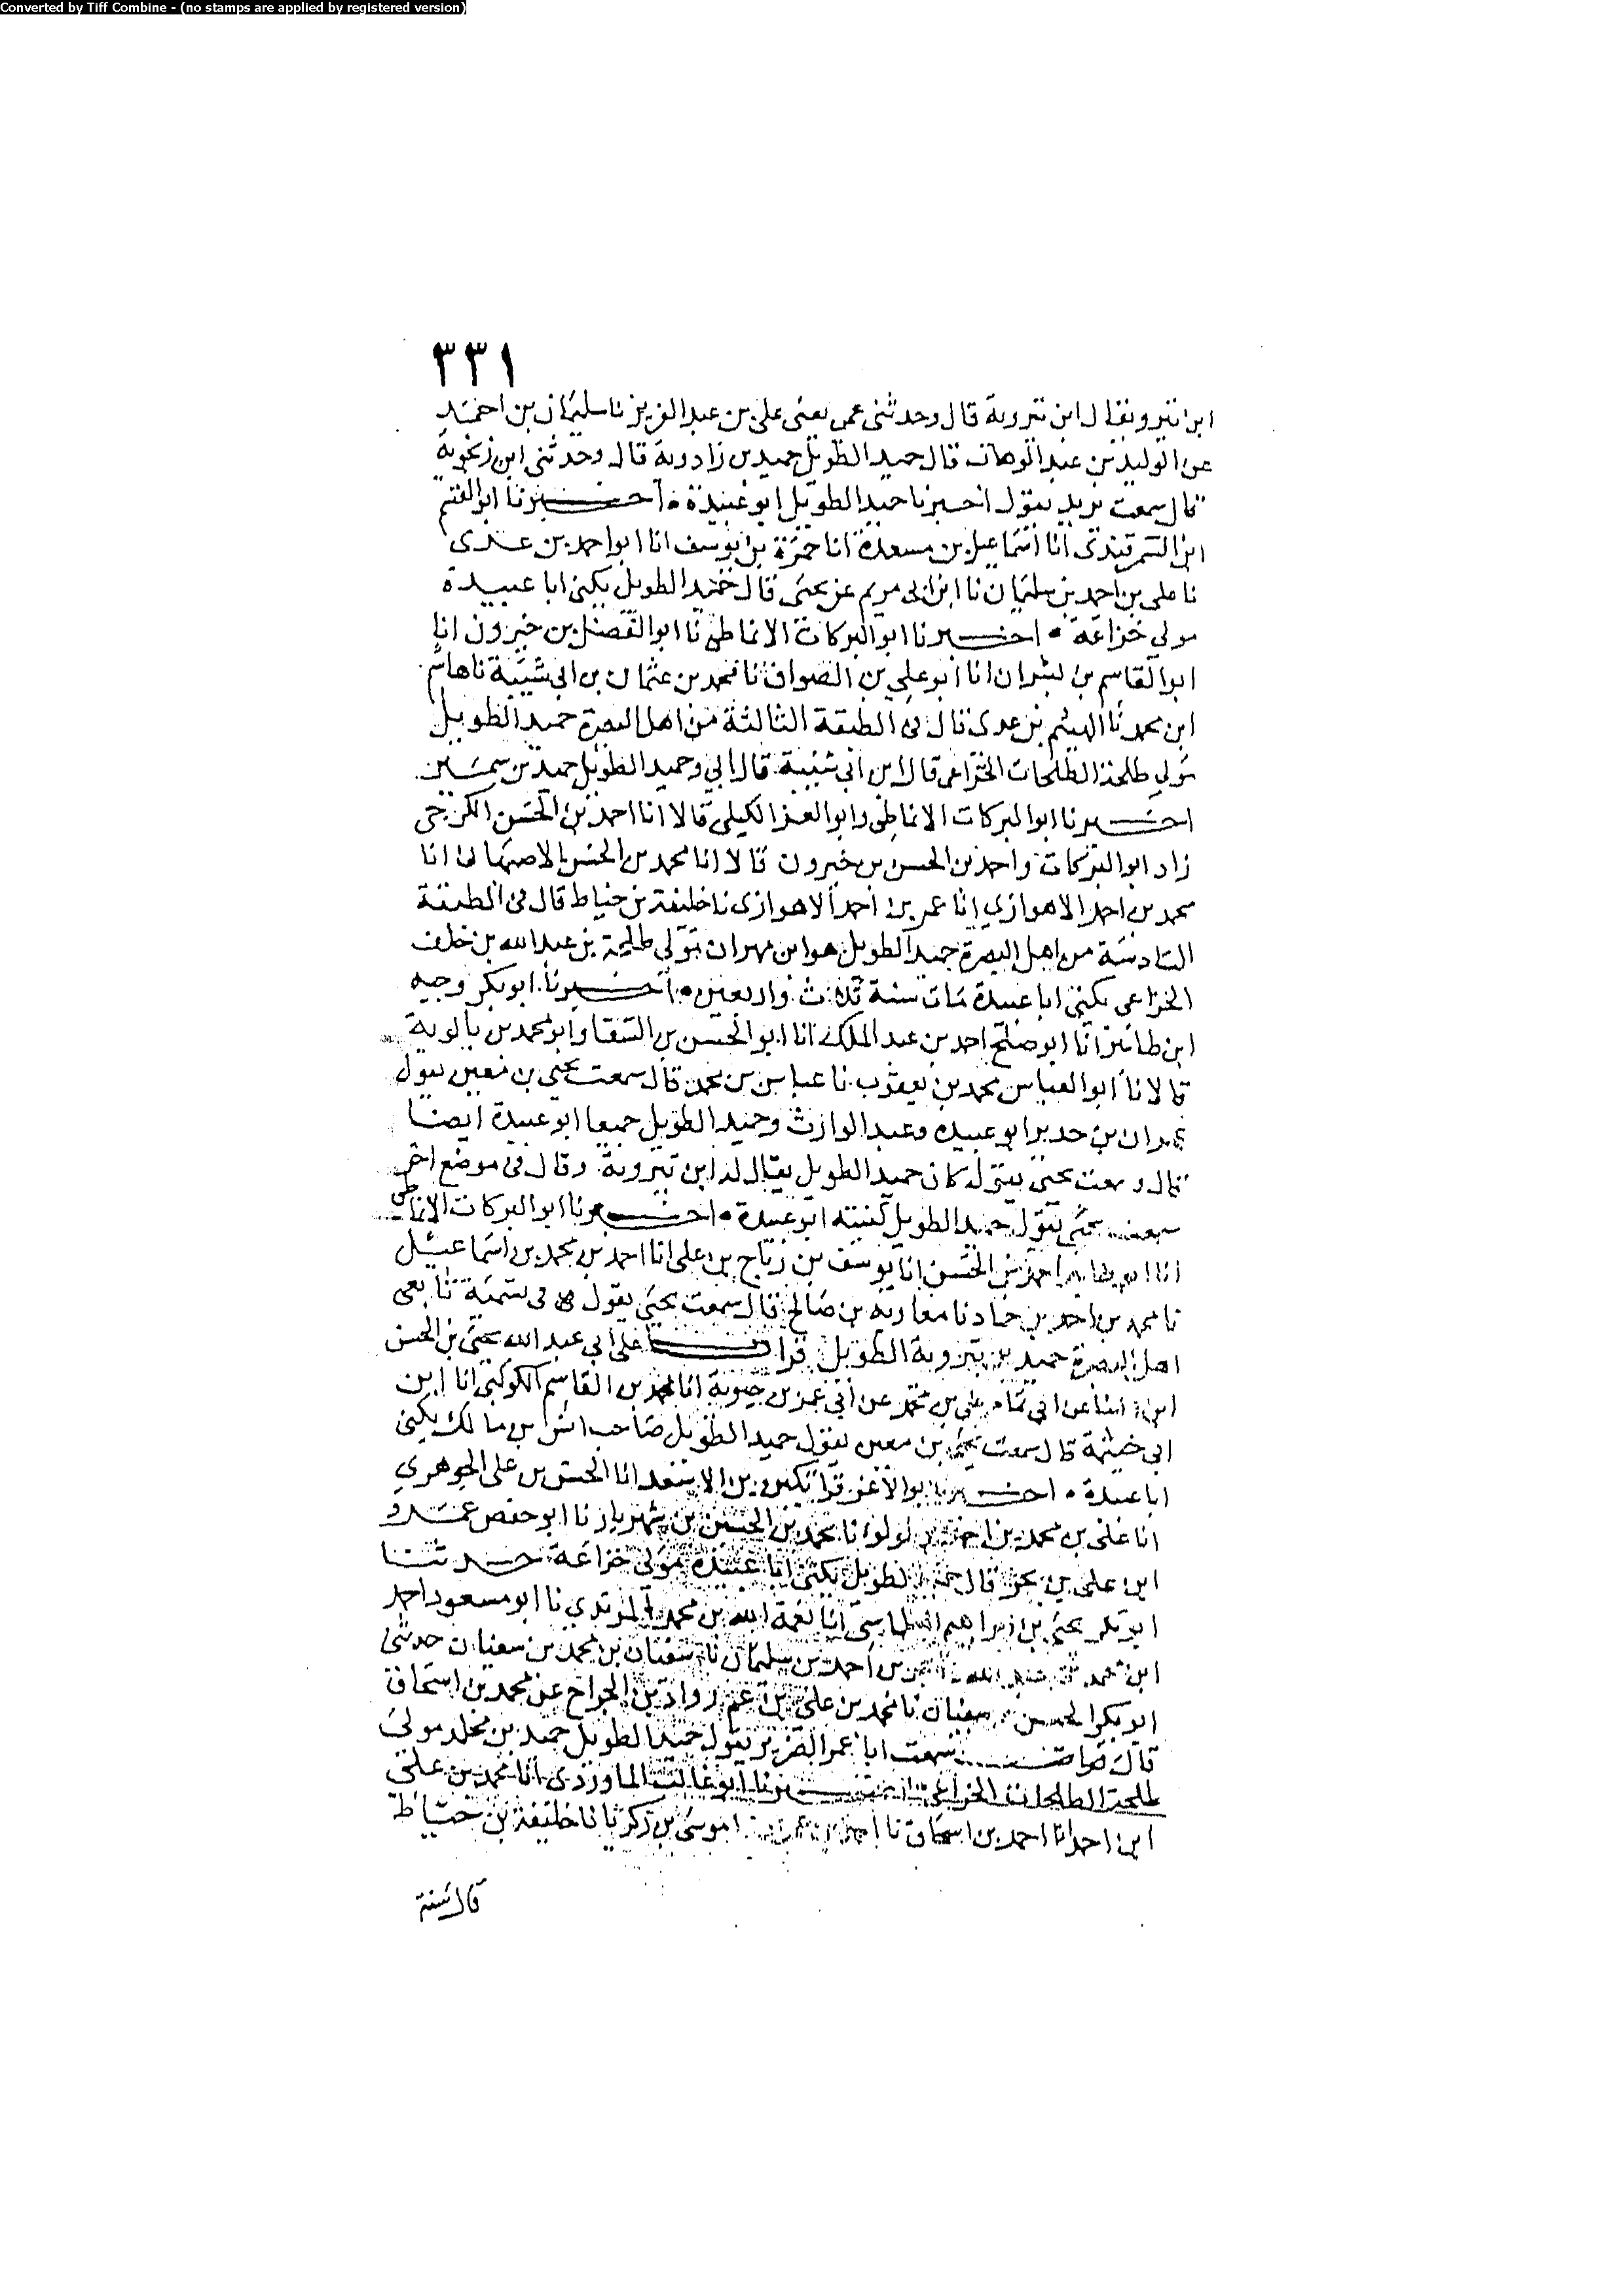 Converted by Tiff Combine - (no stamps are applied by registered version)
٣٣١
ابن تيرويقال ابن تيروية قال وحدثني عمي يعني علي بن عبد العزيز نا سليمان بن احمد
عن الوليد بن عبد الوهاب قال حميد الطويل حميد بن زادوية قال وحدثني ابن زنجوية
قال سمعت يزيد يقول اخبرنا حميد الطويل ابو عبيدة • اخبرنا ابو القسم
ابن السمرقندي انا اسماعيل بن مسعدة انا حمزة بن يوسف انا ابو احمد بن عدي
نا علي بن احمد بن سليمان نا ابن ابي مريم عن يحيى قال حميد الطويل يكنى ابا عبيدة
مولي خزاعة • اخبرنا ابو البركات الانماطي نا ابو الفضل بن خيرون انا
ابو القاسم بن بشران انا ابو علي بن الصواف نا محمد بن عثمان بن ابي شيبة نا هاشم
ابن محمد نا الهيثم بن عدي قال في الطبقة الثالثة من اهل البصرة حميد الطويل
مولي طلحة الطلحات الخزاعي قال ابن ابي شيبة قال ابي وحميد الطويل حميد بن
اخبرنا ابو البركات الانماطي وابو العز الكيلي قالا انا احمد بن الحسن الكرجي
زاد ابو البركات واحمد بن الحسن بن خيرون قالا انا محمد بن الحسن الاصبهاني انا
محمد بن احمد الاهوازي انا عمر بن احمد الاهوازي نا خليفة بن خياط قال في الطبقة
السادسة من اهل البصرة حميد الطويل هو ابن مهران مولي طلحة بن عبد الله بن خلف
الخزاعي يكنى ابا عبيدة مات سنة ثلاث واربعين • اخبرنا ابو بكر وجيه
ابن طاهر انا ابو صالح احمد بن عبد الملك انا ابو الحسن بن السقا وابو محمد بن بالوية
قالا نا ابو العباس محمد بن يعقوب نا عباس بن محمد قال سمعت يحيى بن معين يقول
عمران بن حدير ابو عبيدة وعبد الوارث وحميد الطويل جميعا ابو عبيدة ايضا
قال وسمعت يحيى يقول كان حميد الطويل يقال له ابن تيروية وقال في موضع اخر
سمعت يحيى يقول حميد الطويل كنيته ابو عبيدة • اخبرنا ابو البركات الانماطي
انا احمد بن الحسن انا يوسف بن رباح بن علي انا احمد بن محمد بن اسماعيل
نا محمد بن احمد بن حماد نا معاوية بن صالح قال سمعت يحيى يقول في تسمية تابعي
اهل البصرة حميد بن تيروية الطويل قرات على ابي عبد الله يحيى بن الحسن
ابن البنا عن ابي تمام علي بن محمد عن ابي عمر بن حيوية انا محمد بن القاسم الكوكبي انا ابن
ابي خيثمة قال سمعت يحيى بن معين يقول حميد الطويل صاحب انس بن مالك يكنى
ابا عبيدة • اخبرنا ابو الاعز قراتكين بن الاسعد انا الحسن بن علي الجوهري
انا علي بن محمد بن احمد بن لولو انا محمد بن الحسين بن شهريار نا ابو حفص عمرو
ابن علي بن بحر قال حميد الطويل يكنى ابا عبيدة مولى خزاعة حدثنا
ابو بكر يحيى بن ابراهيم السلماسي انا نعمة الله بن محمد المرندي نا ابو مسعود احمد
ابن محمد بن عبد الله نا محمد بن احمد بن سليمان نا سفيان بن محمد بن سفيان حدثني
ابو بكر الحسن بن سفيان نا محمد بن علي بن عم رواد بن الجراح عن محمد بن اسحاق
قال سمعت ابا عمر الضرير يقول حميد الطويل حميد بن مخلد مولى
طلحة الطلحات الخزاعي اخبرنا ابو غالب الماوردي انا محمد بن علي
ابن احمد انا احمد بن اسحاق نا احمد بن عمران نا موسى بن زكريا نا خليفة بن خياط
قال سنة